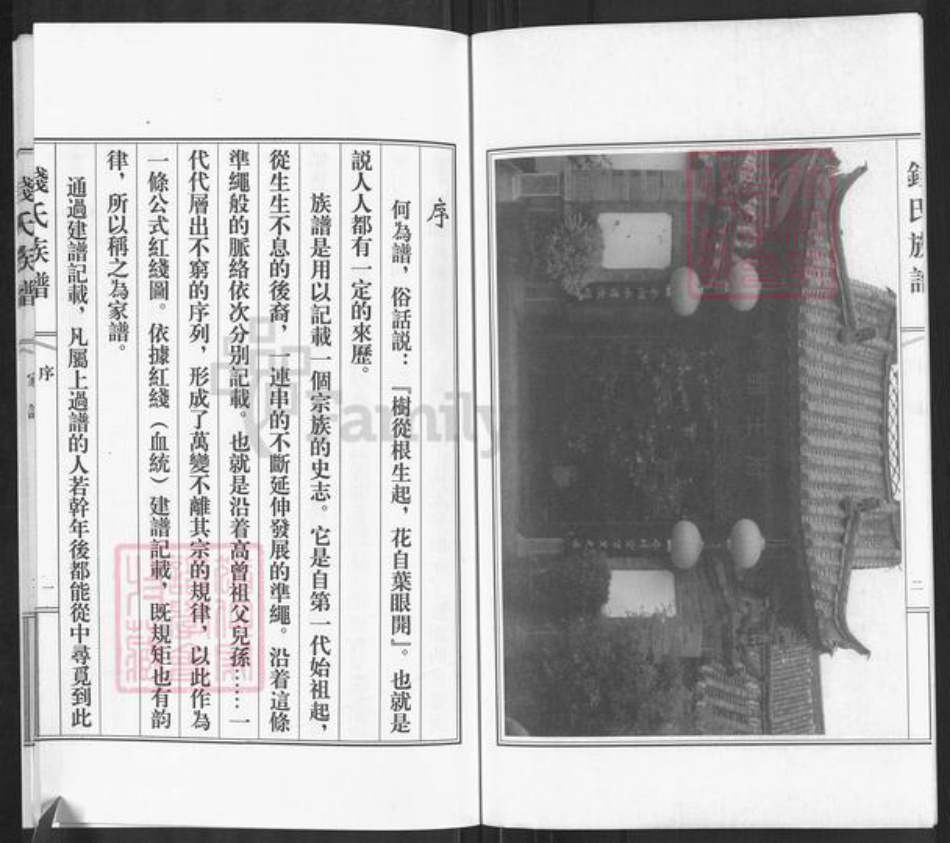 序
何為譜，俗話説：『樹從根生起，花自葉眼開』。也就是
説人人都有一定的來歷。
族譜是用以記載一個宗族的史志。它是自第一代始祖起，
從生生不息的後裔，一連串的不斷延伸發展的準繩。沿着這條
準繩般的脈絡依次分别記載。也就是沿着高曾祖父兒孫……一
代代層出不窮的序列，形成了萬變不離其宗的規律，以此作為
一條公式紅綫圖。依據紅綫（血統）建譜記載，既規矩也有韵
律，所以稱之為家譜。
通過建譜記載，凡屬上過譜的人若幹年後都能從中尋覓到此
氏族譜
序
一
氏族譜
二
Family